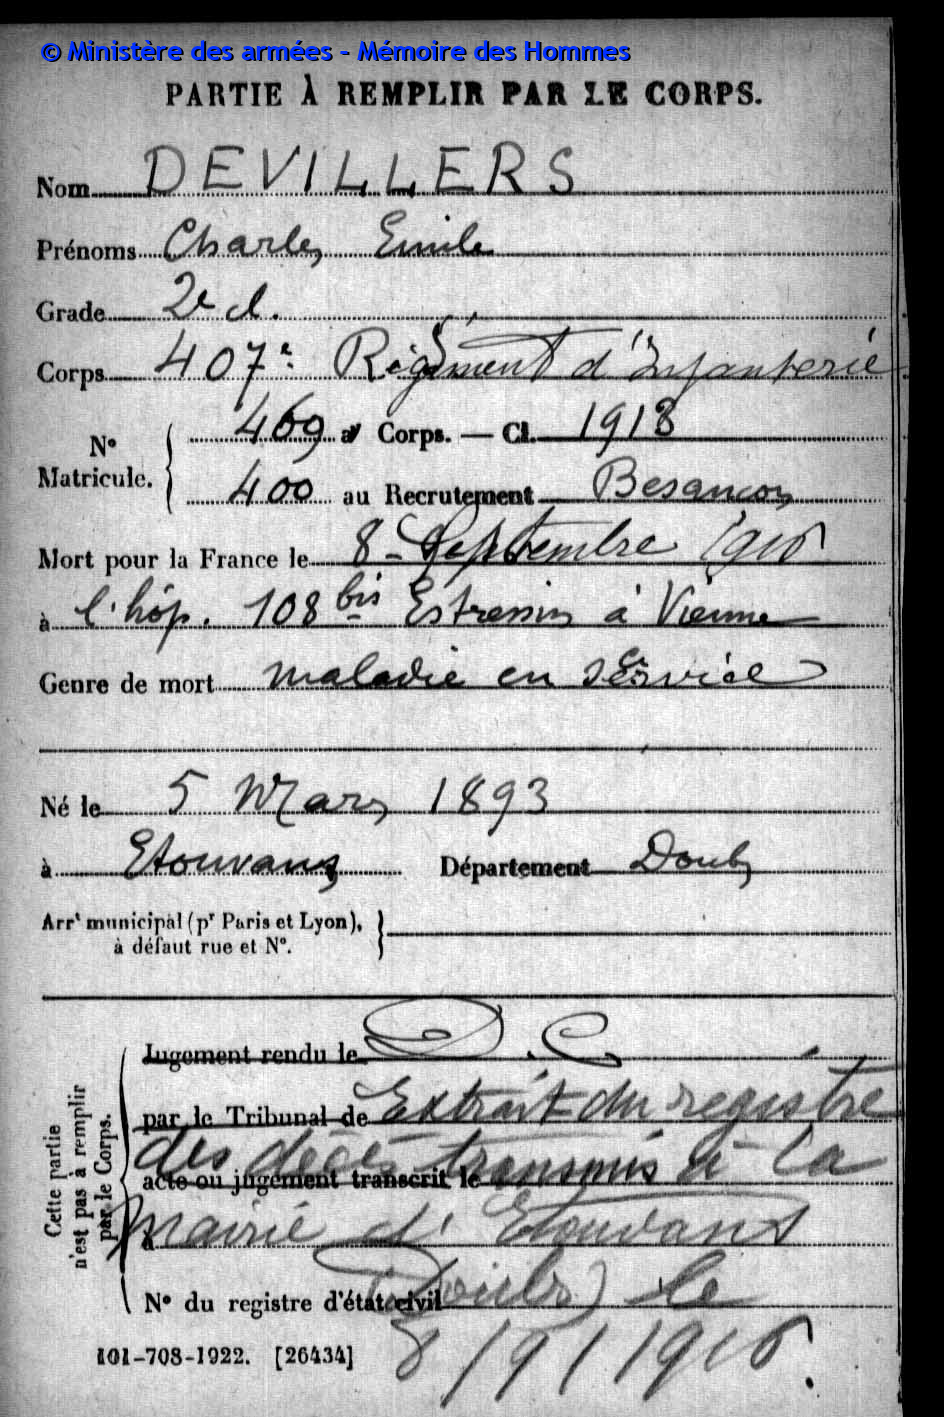 © Ministère des armées - Mémoire des Hommes
PARTIE À REMPLIR PAR LE CORPS.
Nom DEVILLERS
Prénoms Charles Emile
Grade 2e cl.
Corps 407e Régiment d'Infanterie
N° Matricule. 469 au Corps. — Cl. 1913
400 au Recrutement Besançon
Mort pour la France le 8 Septembre 1916
à l'hôp. 108 bis Estressin à Vienne
Genre de mort maladie en service
Né le 5 Mars 1893
à Etouvans Département Doubs
Arrt municipal (pr Paris et Lyon),
à défaut rue et N°.
Cette partie
n'est pas à remplir
par le Corps.
Jugement rendu le D.C
par le Tribunal de Extrait du registre
des décès transmis à la
acte ou jugement transcrit le
à mairie d'Etouvans
(Doubs) le
N° du registre d'état civil
8/9/1916.
101-708-1922. [26434]